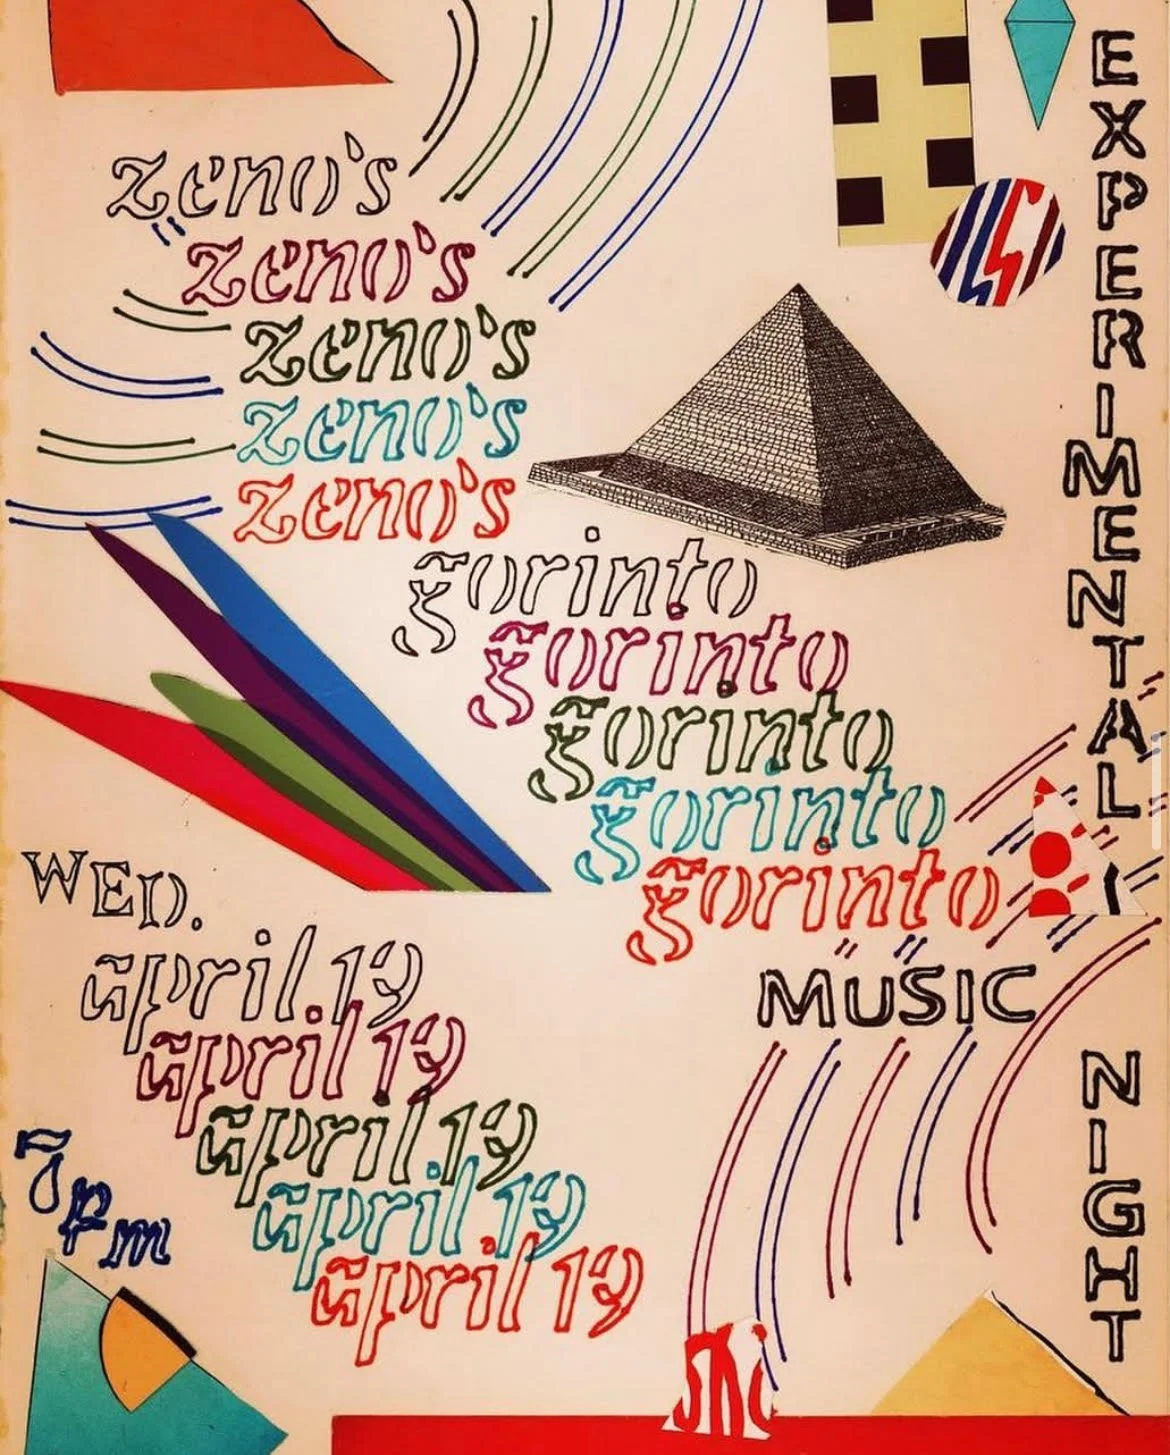 zeno's
zeno's
zeno's
zeno's
zeno's
gorinto
gorinto
gorinto
gorinto
gorinto
WED.
april 19
april 19
april 19
april 19
april 19
7pm
MUSIC
EXPERIMENTAL
NIGHT